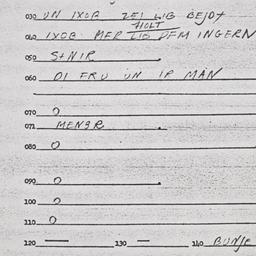 030 UN IXOB ZEI LIB BEJDT
HOLT
040 IXOB MER LIB DEM INGERN
050 S+NIR
060 DI FRU UN IR MAN
070 0
071 MENER
080 0
090 0
100 0
110 0
120 — 130 — 140